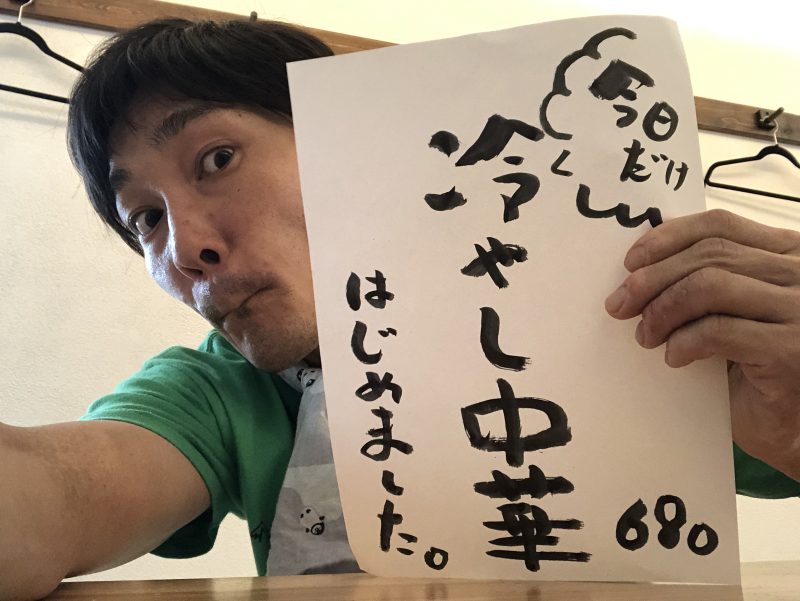 今日
だけ
冷やし中華
680
はじめました。